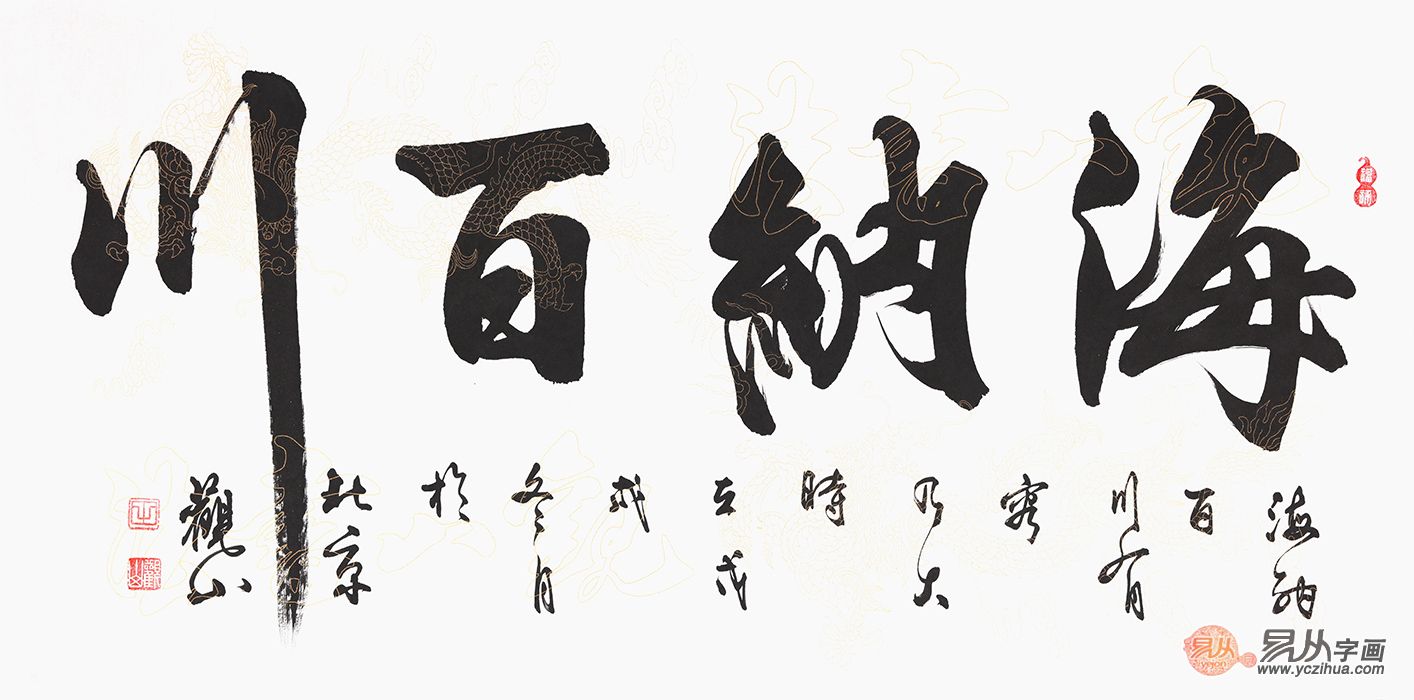 海納百川
海納
百
川有
容
乃大
時
在戊
戌
冬月
於
北京
觀山
易从
易从字画
www.yczihua.com